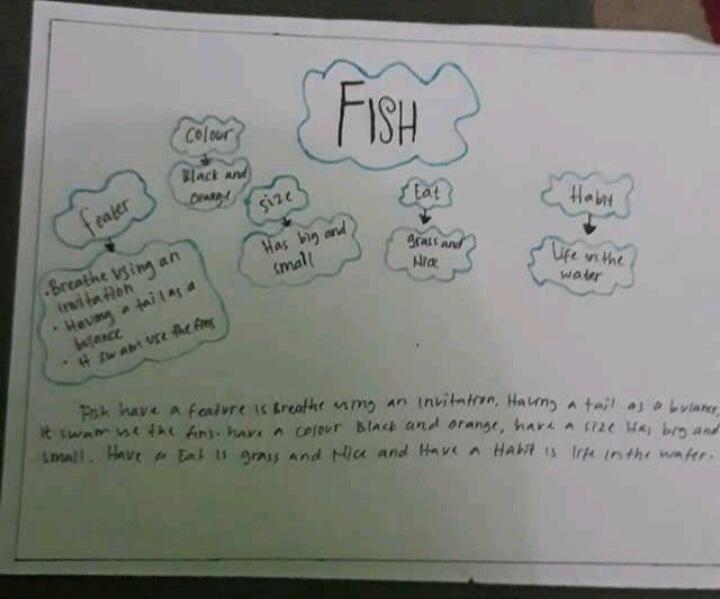 FISH
Colour
Black and
orange
feater
• Breathe using an
invitation
• Having a tail as a
balance
• It swam use the fins
Size
Has big and
small
Eat
grass and
Nice
Habit
Life in the
water
Fish have a feature is Breathe using an invitation. Having a tail as a balance,
it swam use the fins. have a colour Black and orange, have a size Has big and
small. Have a Eat is grass and Nice and Have a Habit is life in the water.